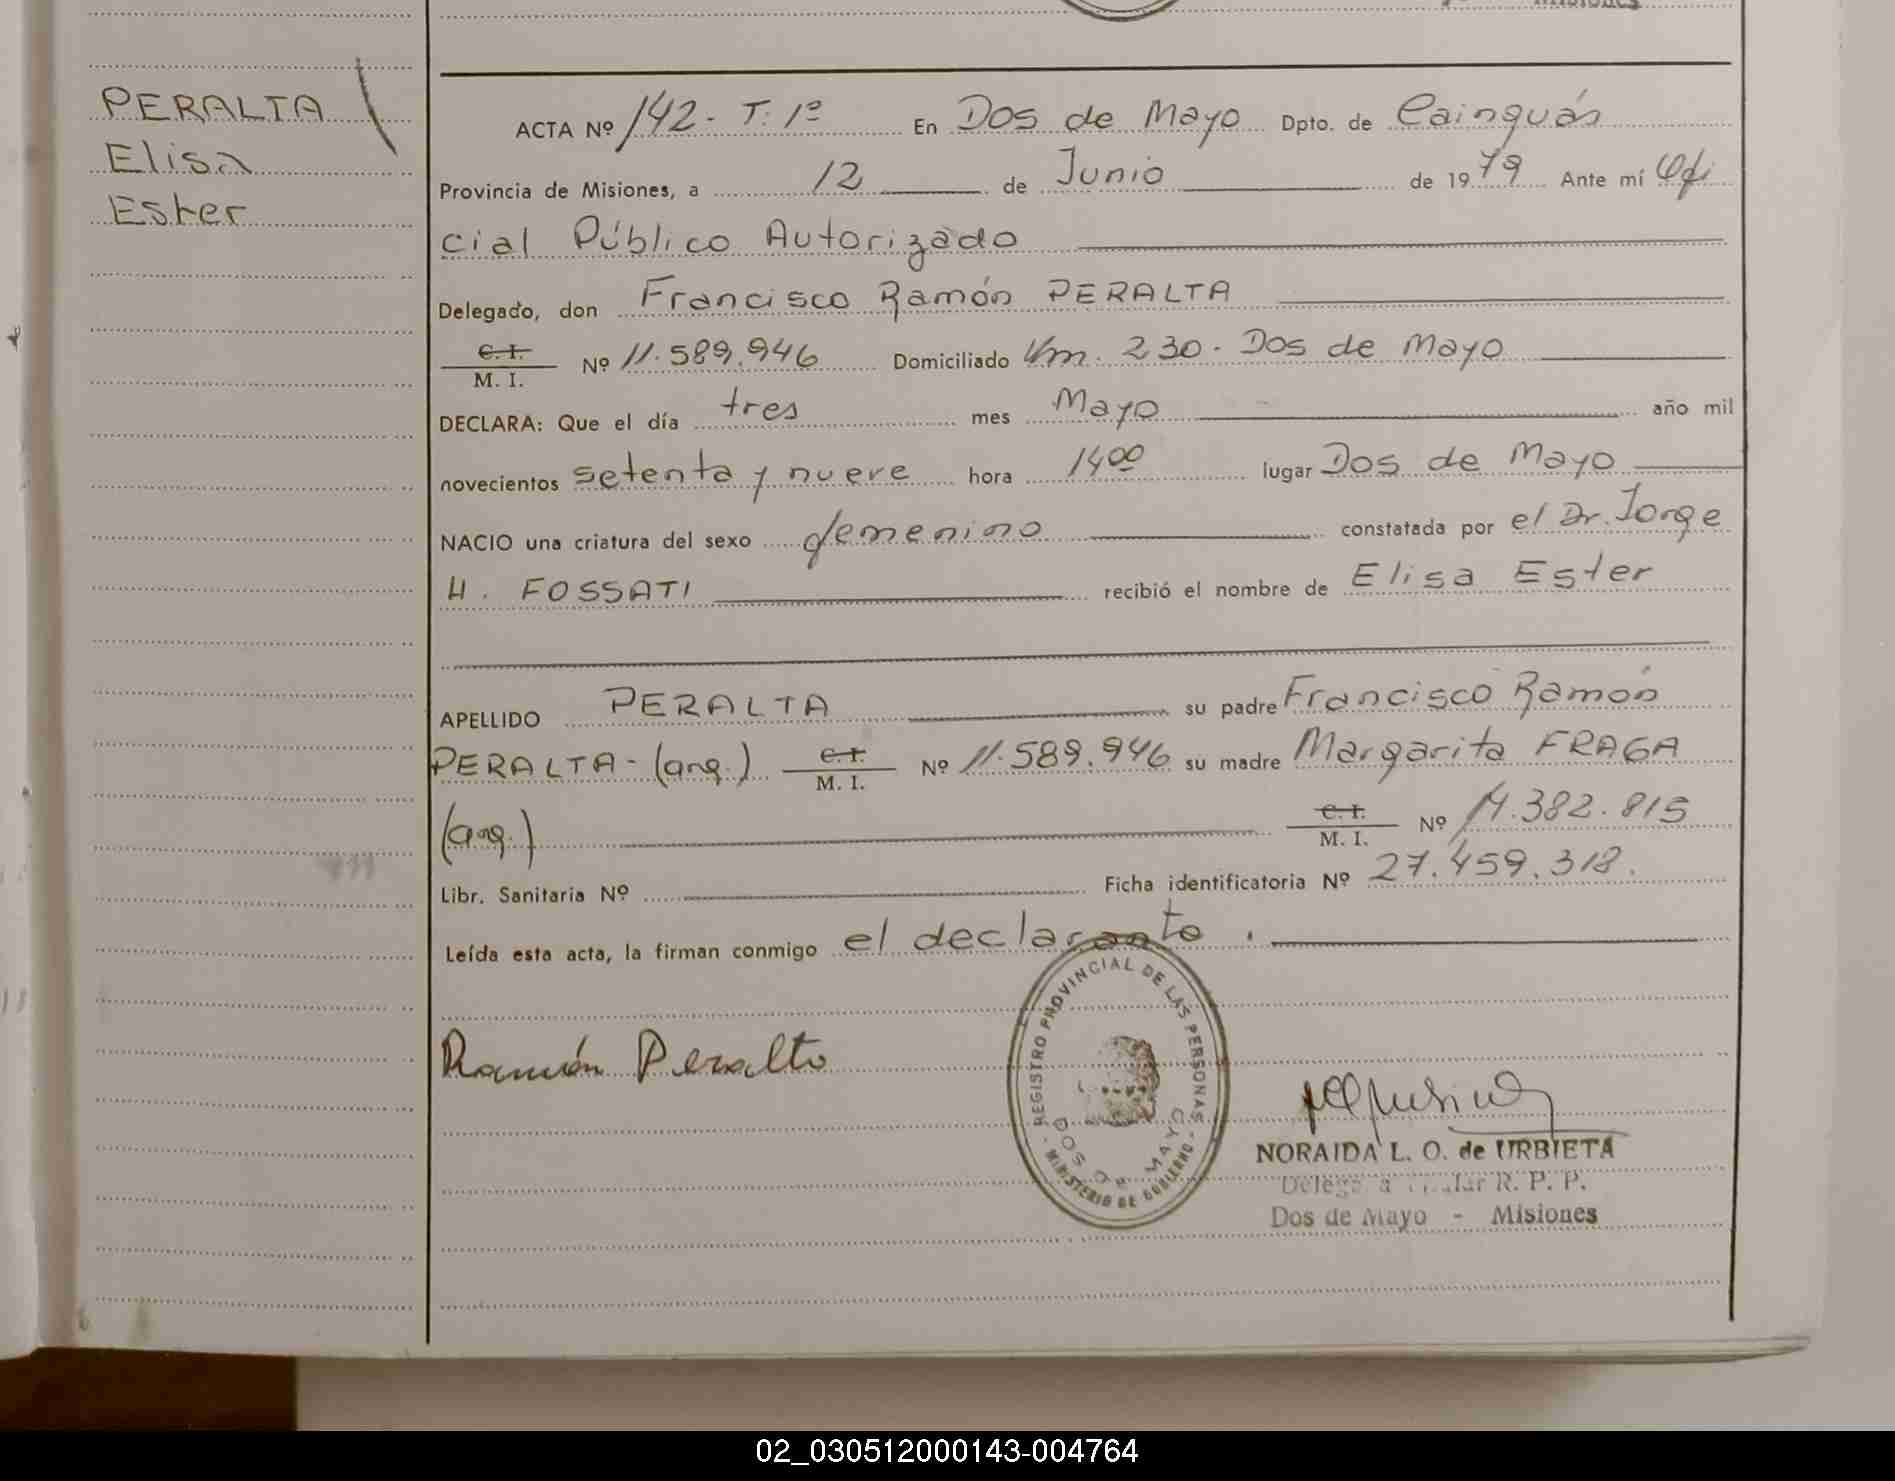 PERALTA
Elisa
Ester
ACTA Nº 142- T: 1º En Dos de Mayo Dpto. de Cainguás
Provincia de Misiones, a 12 de Junio de 1979 Ante mí Ofi
cial Público Autorizado
Delegado, don Francisco Ramón PERALTA
C. I.
M. I. Nº 11.589.946 Domiciliado Km. 230. Dos de Mayo
DECLARA: Que el día tres mes Mayo año mil
novecientos setenta y nueve hora 14 00 lugar Dos de Mayo
NACIO una criatura del sexo femenino constatada por el Dr. Jorge
H. FOSSATI recibió el nombre de Elisa Ester
APELLIDO PERALTA su padre Francisco Ramón
PERALTA- (arg.) C. I. M. I. Nº 11.589.946 su madre Margarita FRAGA
(arg.) C. I. M. I. Nº 14.382.815
Libr. Sanitaria Nº Ficha identificatoria Nº 27.459.318.
Leída esta acta, la firman conmigo el declarante.
Ramón Peralta
REGISTRO PROVINCIAL DE LAS PERSONAS
DOS DE MAYO
- MINISTERIO DE GOBIERNO -
NORAIDA L. O. de URBIETA
R. P. P.
Dos de Mayo - Misiones
02_030512000143-004764